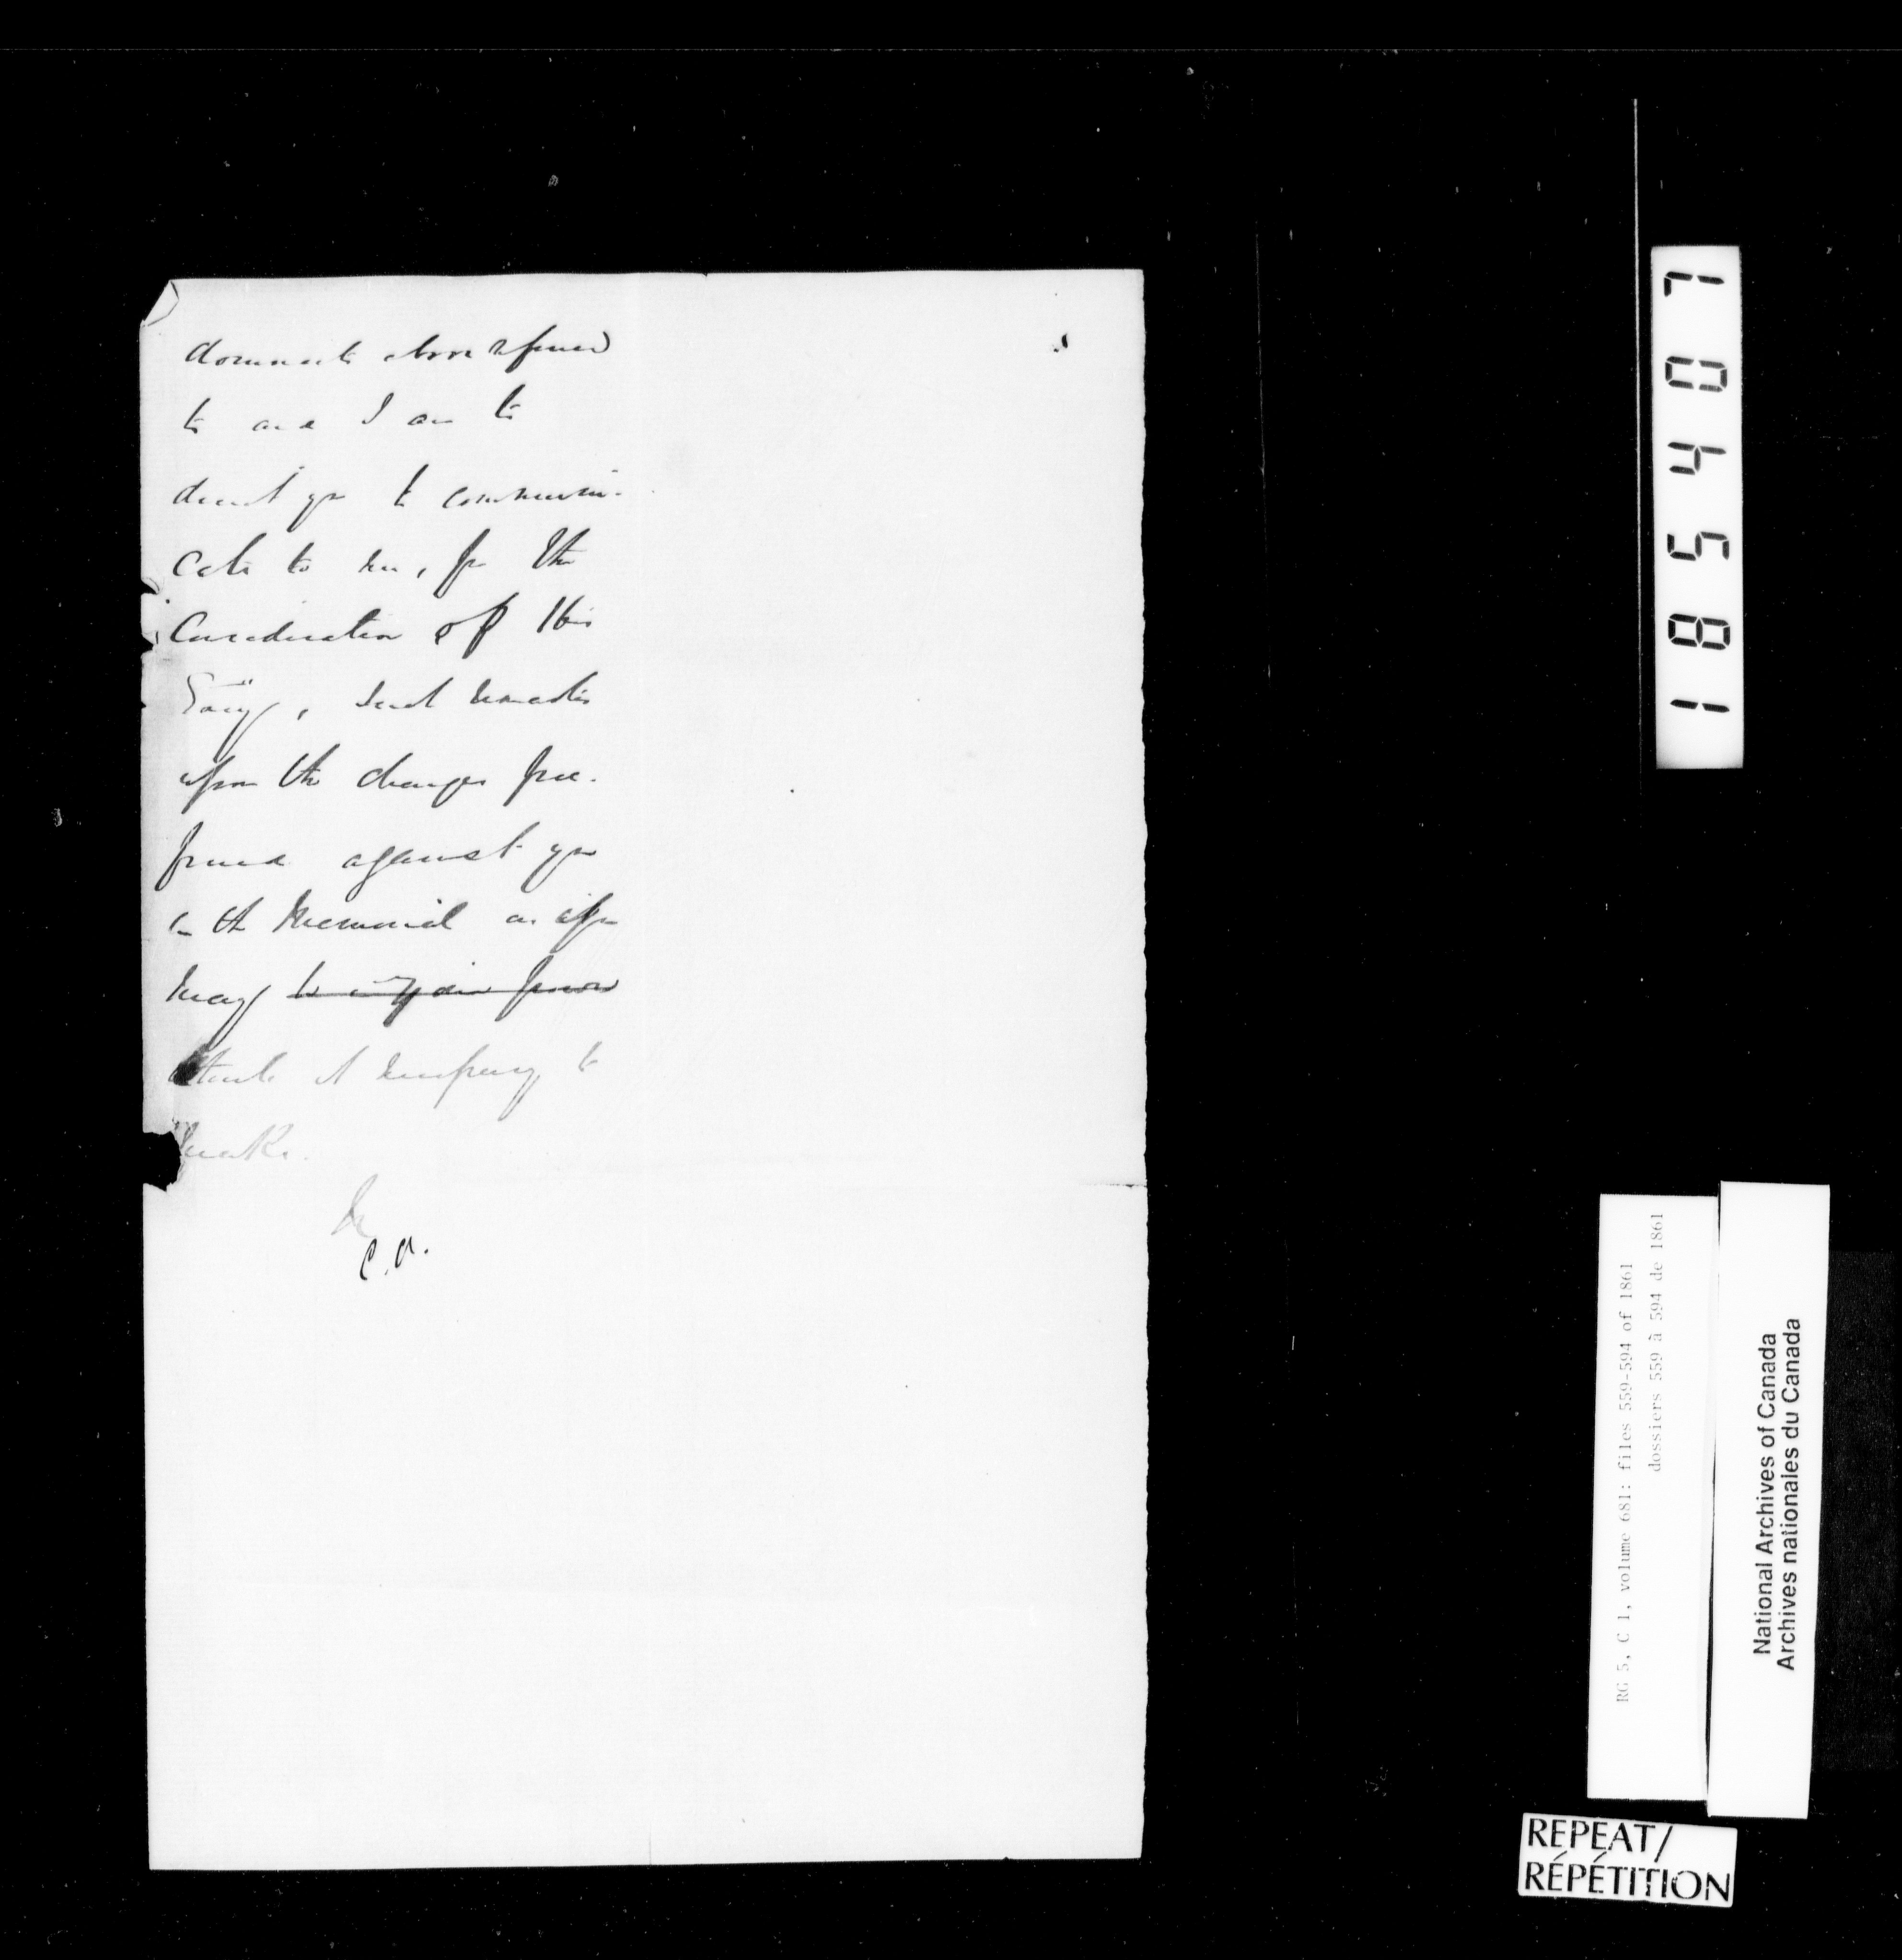 documents above referred
to and I am to
direct you to communi-
cate to me, for the
Consideration of His
Excy, such remarks
upon the charges pre-
ferred against you
in the Memorial as
may
it necessary to
make.
C.A.
1 8 5 4 0 7
RG 5, C 1, volume 681: files 559-594 of 1861
dossiers 559 à 594 de 1861
National Archives of Canada
Archives nationales du Canada
REPEAT/
RÉPÉTITION